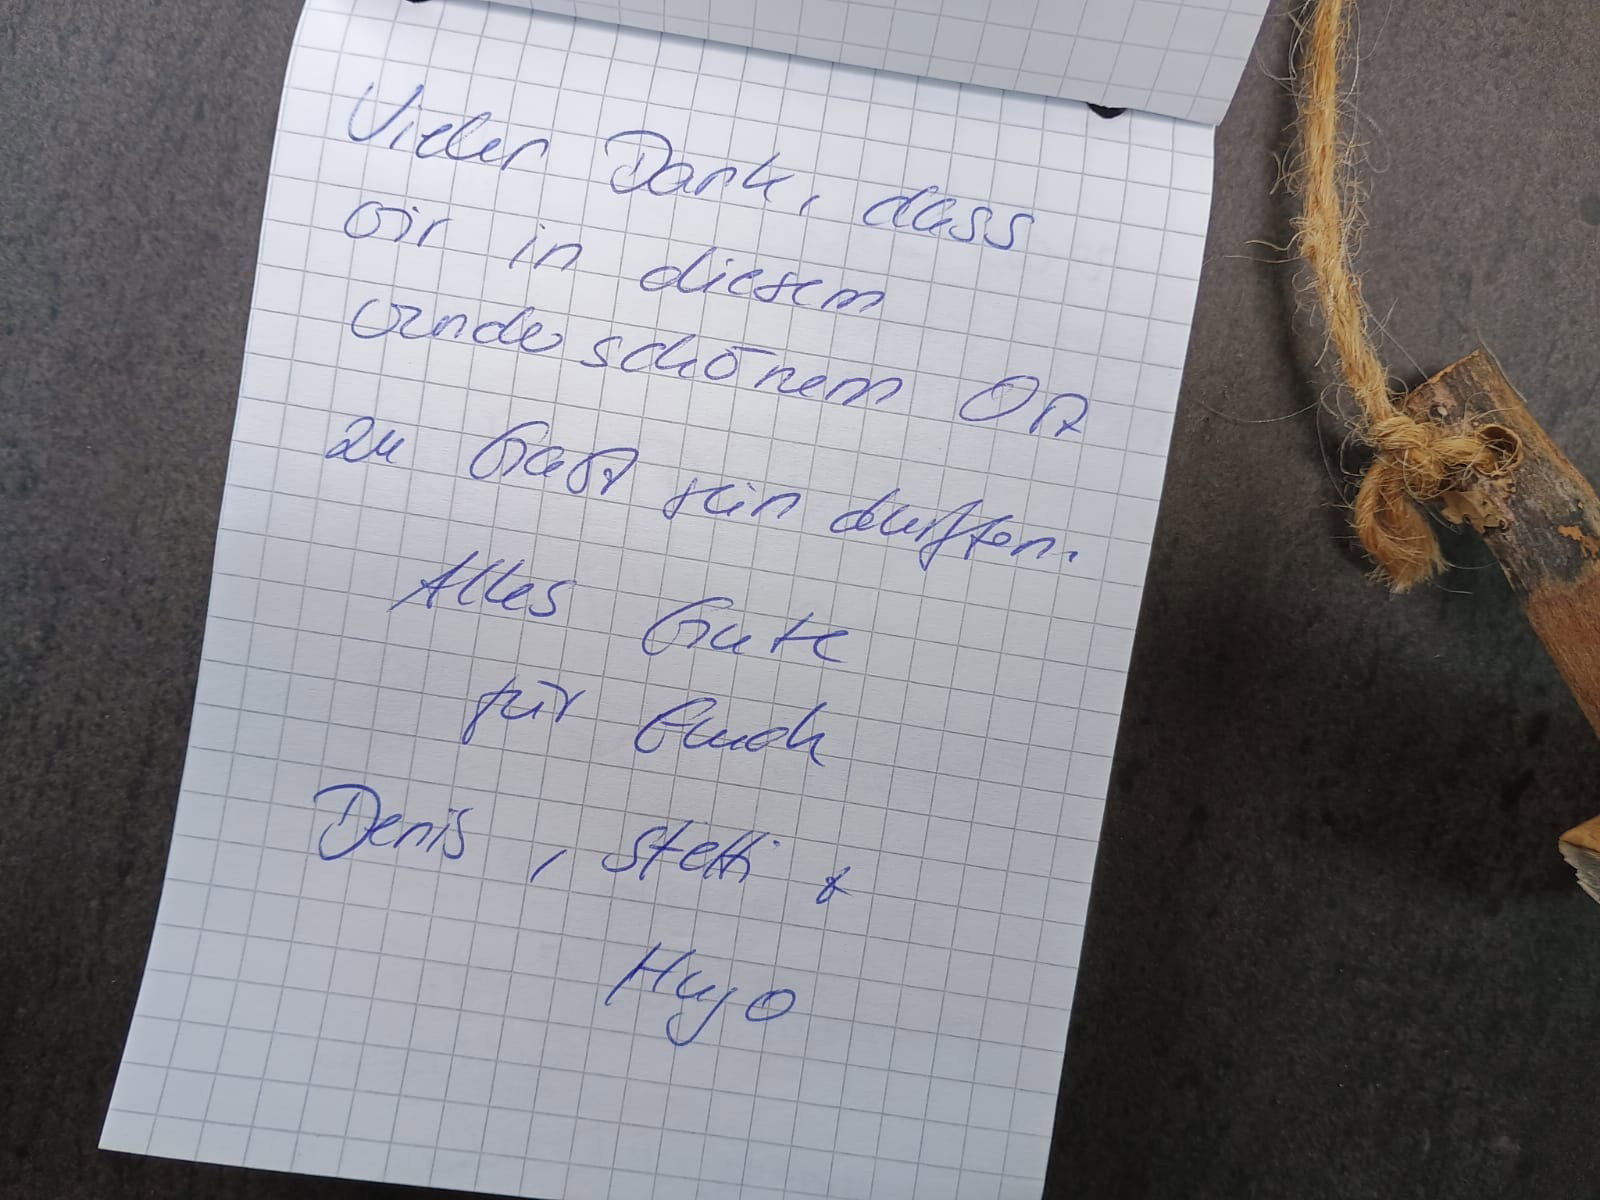 Vielen Dank, dass
wir in diesem
wunderschönem Ort
zu Gast sein durften.
Alles Gute
für Euch
Denis, Steffi &
Hugo